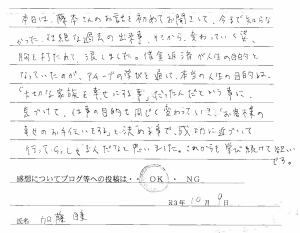 本日は、藤本さんのお話を初めてお聞きして、今まで知らな
かった、壮絶な過去の出来事、そこから、変わっていく姿、
胸を打たれて、涙しました。借金返済が人生の目的と
なっていたのが、アチーブの学びを通じて、本当の人生の目的は、
「大切な家族を幸せにする事」だったんだという事に
気づけて、仕事の目的も同じく変わっていき、「お客様の
幸せのお手伝いをする」と決める事で、成功に近づいて
行って
なんだなと思いました。これからも学び続けて
感想についてブログ等への投稿は・・OK・NG
R3年10月9日
氏名 加藤